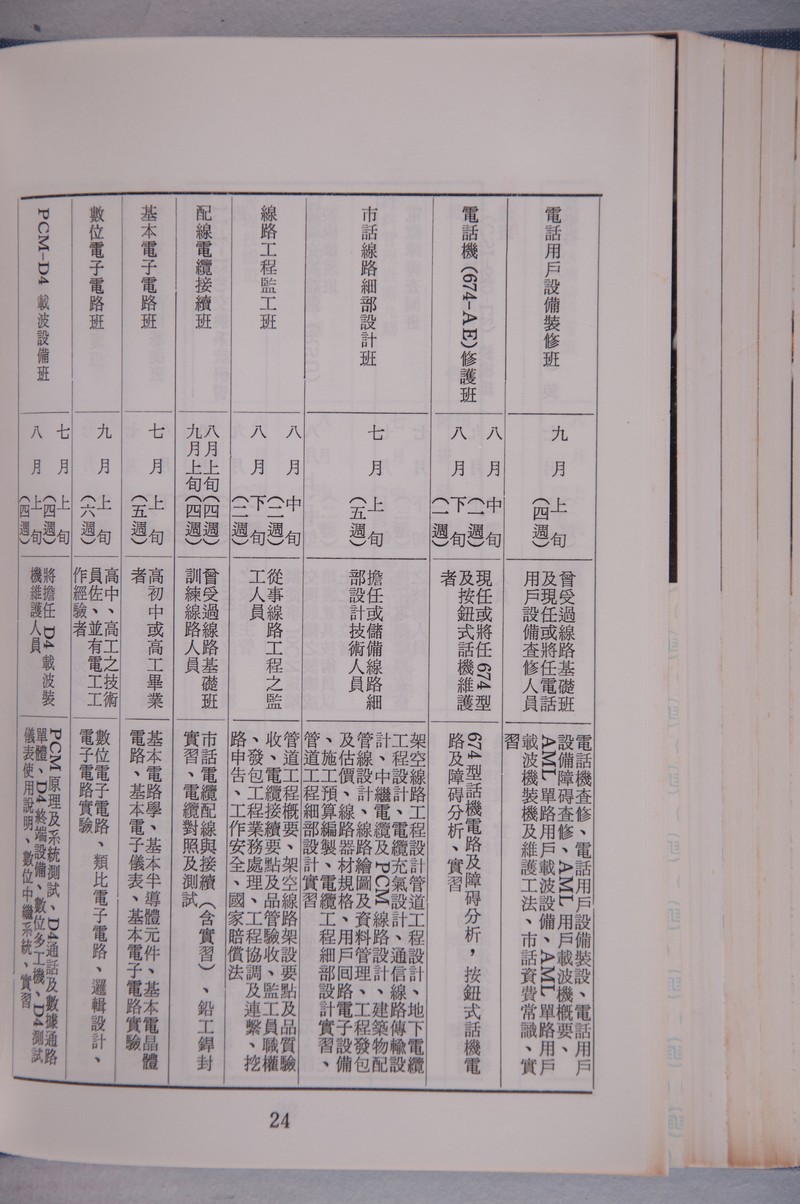 電話用戶設備裝修班
九月
上旬
(四週)
曾受過線路基礎班
及現任或將任電話
用戶設備查修人員
電話機查修、電話用戶設備裝設、電話用戶
設備障碍查修、AML用戶載波機概要、
AML單路用戶載波設備、AML單路用戶
載波機裝機及維護工法、市話資費常識、實
習
電話機(674-AE)修護班
八月
中旬
(一週)
八月
下旬
(一週)
現任或將任674型
及按鈕式話機維護
者
674型話機電路及障碍分析,按鈕式話機電
路及障碍分析、實習
市話線路細部設計班
七月
上旬
(五週)
擔任或儲備線路細
部設計技術人員
架空線路工程設計管道工程設計、地下電纜
工程設計、電纜充氣設計、通信線路傳輸設
計、中繼電纜及PCM線路設計、建築物配
管線設計、線路繪圖及資料管理、工程發包
及估價、線路器材規格、用戶囘路電子設備
、施工預算編製、電纜工程細部設計實習、
管道工程細部設計實習
線路工程監工班
八月
中旬
(二週)
八月
下旬
(二週)
從事線路工程之監
工人員
管道工程概要、架空線路架設要點及品質驗
收、電纜接續要點及品管驗收、監工員職權
、發包工程業務處理、工程協調及連繫、挖
路申告、工作安全、國家賠償法
配線電纜接續班
八月上旬(四週)
九月上旬(四週)
曾受過線路基礎班
訓練線路人員
市話電纜配線與接續(含實習)、鉛工銲封
實習、電纜對照及測試
基本電子電路班
七月
上旬
(五週)
高初中或高工畢業
者
基本電路學、基本半導體元件、基本電晶體
電路、基本電子儀表、基本電子電路實驗
數位電子電路班
九月
上旬
(六週)
高中、高工之技術
員佐、並有電工工
作經驗者
數位電子電路、類比電子電路、邏輯設計、
電子電路實驗
PCM-D4載波設備班
七月
上旬
(四週)
八月
上旬
(四週)
將擔任D4載波裝
機維護人員
PCM原理及系統測試、D4通話及數據通路
單體、D4終端設備、數位多工機、D4測試
儀表使用說明、數位中繼系統、實習
24